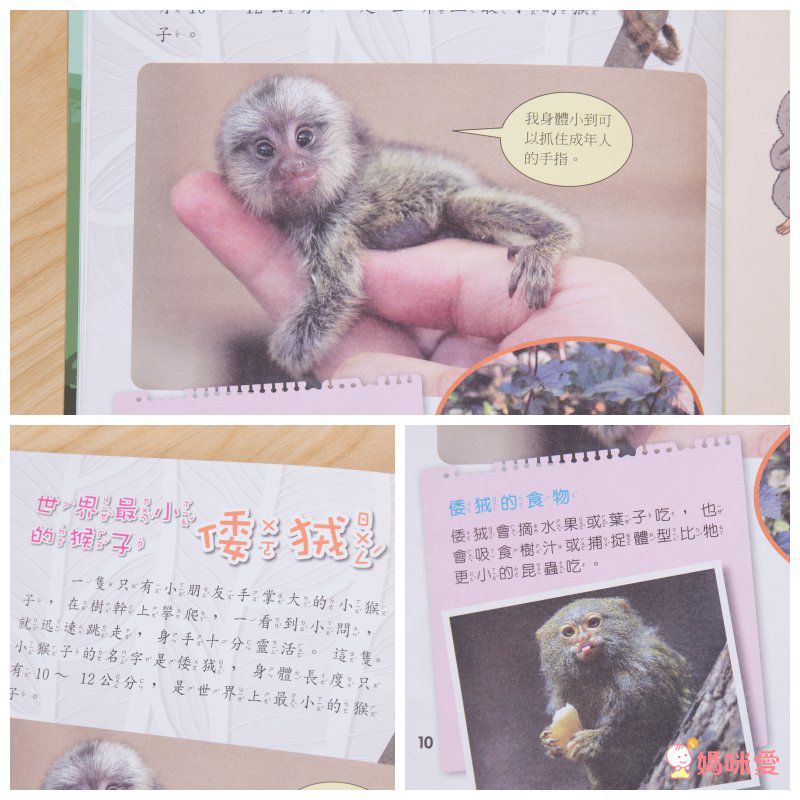 子。
我身體小到可
以抓住成年人
的手指。
世界最小
的猴子
倭狨
一隻只有小朋友手掌大的小猴
子，在樹幹上攀爬，一看到小問，
就迅速跳走，身手十分靈活。這隻
小猴子的名字是倭狨，身體長度只
有10～12公分，是世界上最小的猴
子。
倭狨的食物
倭狨會摘水果或葉子吃，也
會吸食樹汁或捕捉體型比牠
更小的昆蟲吃。
10
媽咪愛